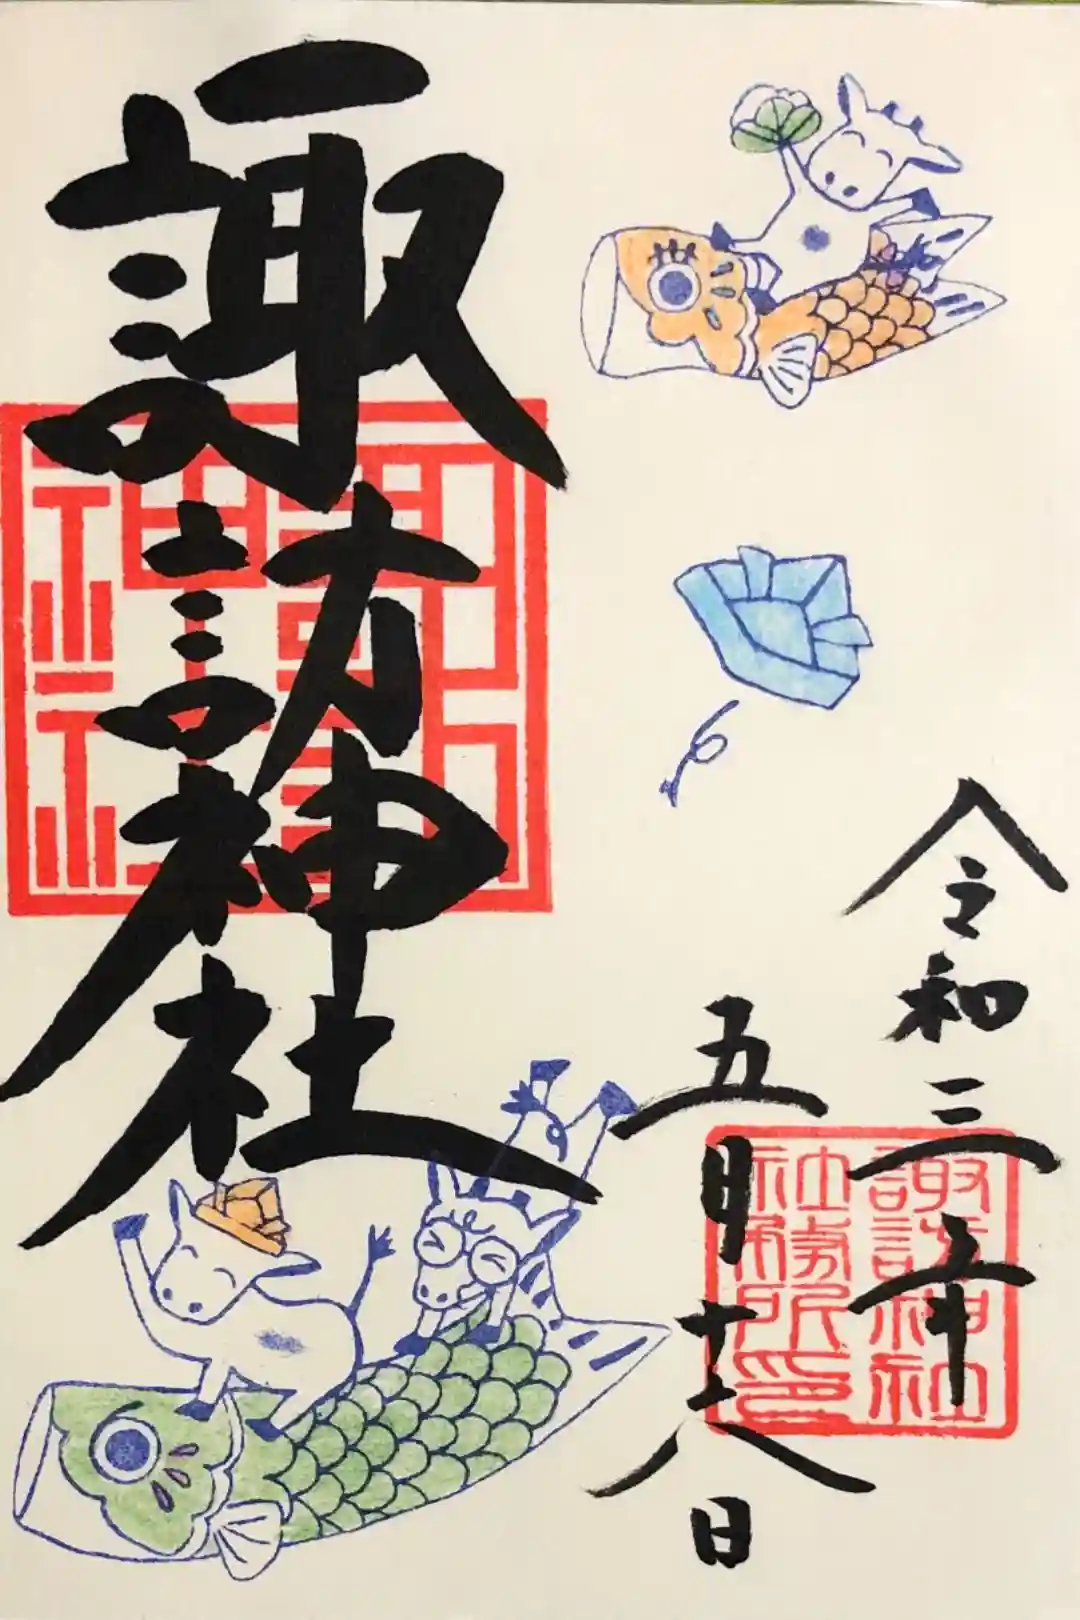 諏訪神社
令和三年
五月十六日
諏訪神社
諏訪神社
社務所印